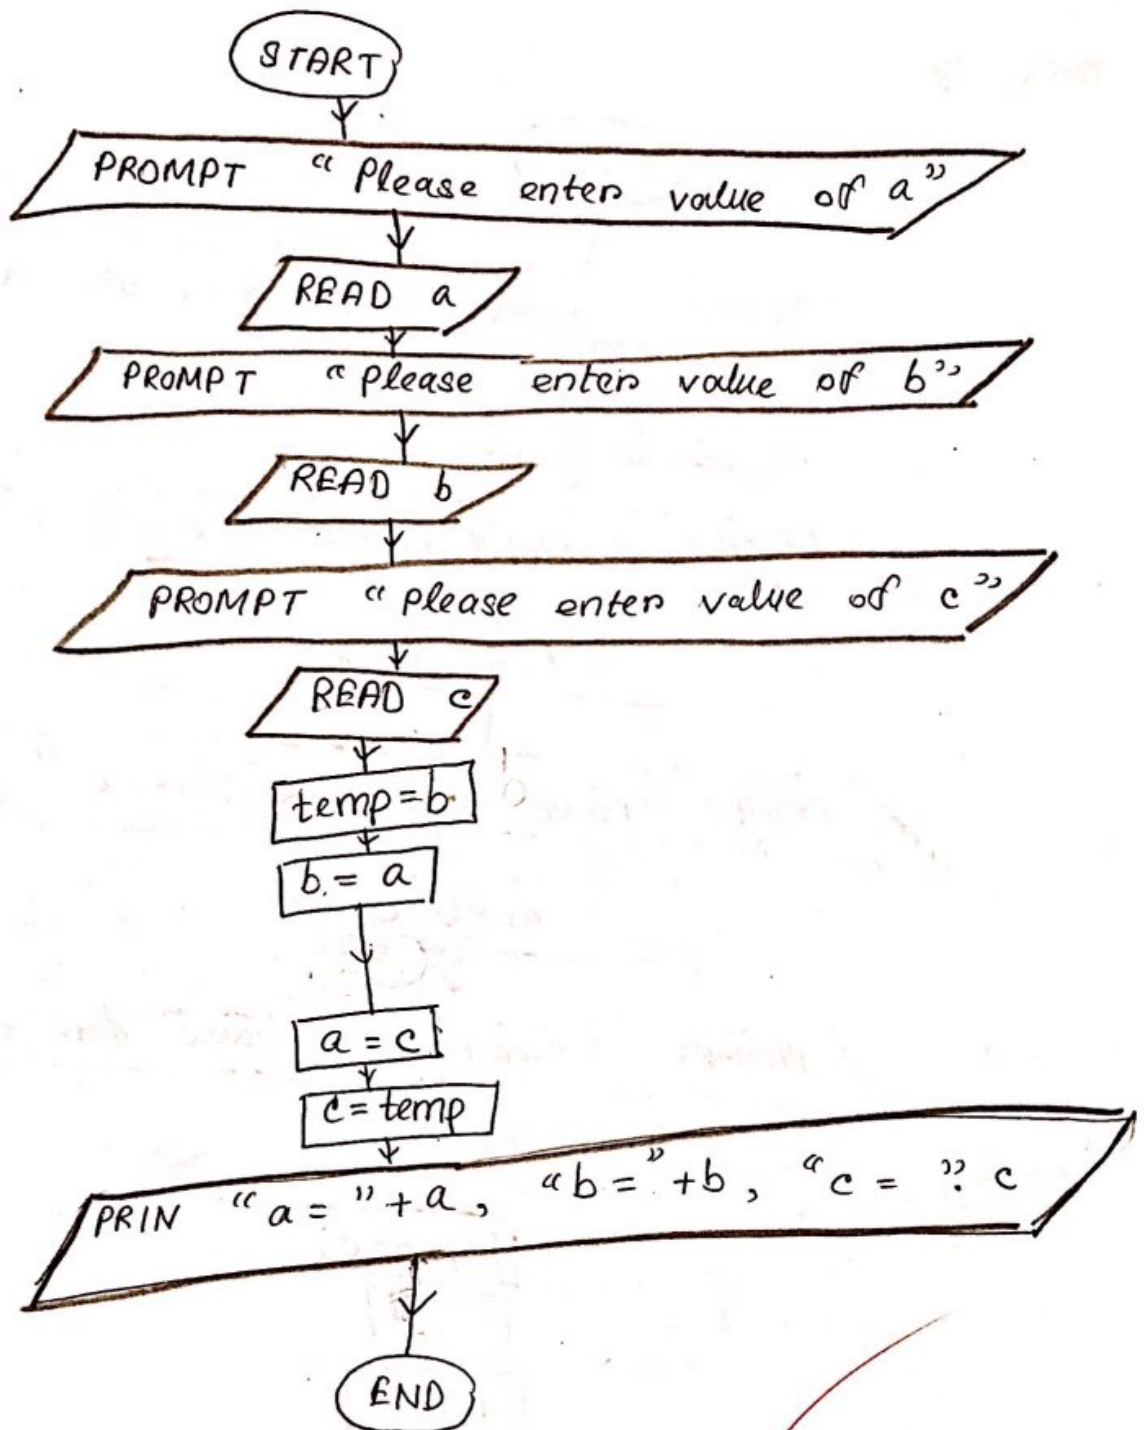 START
PROMPT "Please enter value of a"
READ a
PROMPT "Please enter value of b"
READ b
PROMPT "Please enter value of c"
READ c
temp=b
b = a
a = c
c = temp
PRIN "a = "+a, "b = "+b, "c = ": c
END